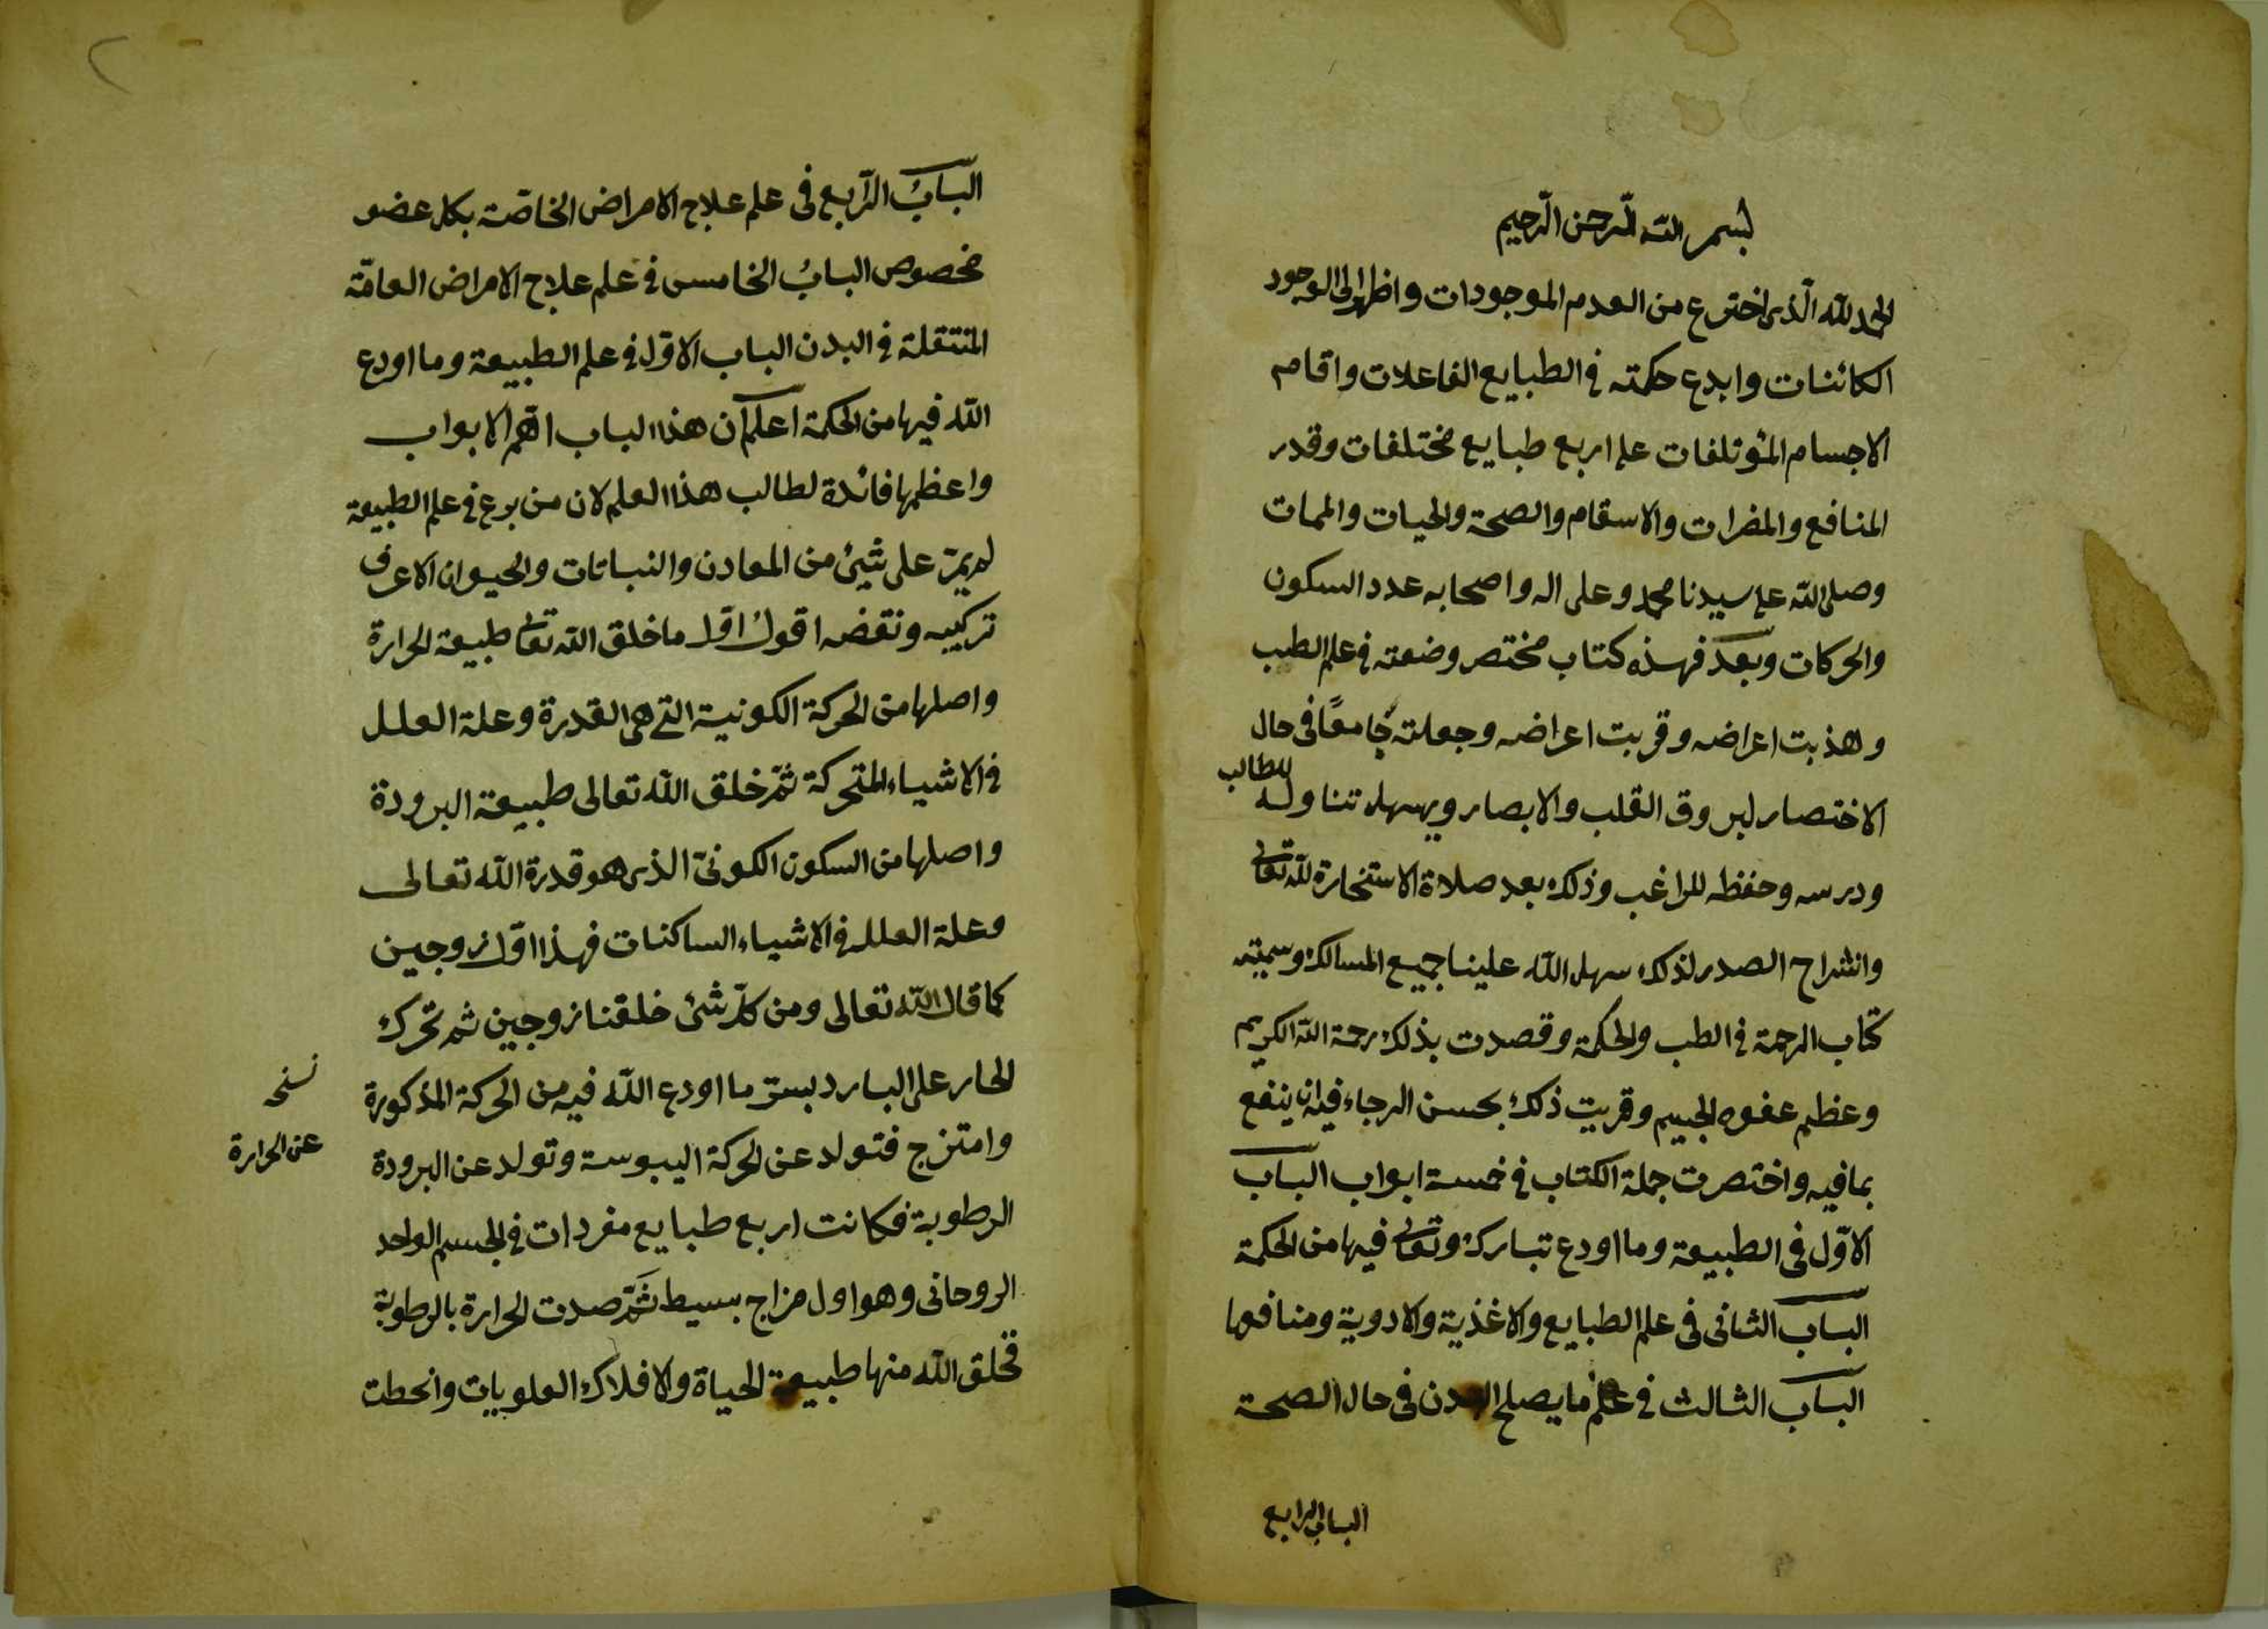 بسم الله الرحمن الرحيم
الحمد لله الذى اخترع من العدم الموجودات واظهر الى الوجود
الكائنات وابدع حكمته فى الطبايع الفاعلات واقام
الاجسام المؤتلفات على اربع طبايع مختلفات وقدر
المنافع والمضرات والاسقام والصحة والحيات والممات
وصلى الله على سيدنا محمد وعلى اله واصحابه عدد السكون
والحركات وبعد فهذه كتاب مختصر وضعته فى علم الطب
وهذبت اعراضه وقربت اعراضه وجعلته جامعًا فى حال
الاختصار ليروق القلب والابصار ويسهل تناوله للطالب
ودرسه وحفظه للراغب وذلك بعد صلاة الاستخارة لله تعالى
وانشراح الصدر لذلك سهل الله علينا جميع المسالك وسميته
كتاب الرحمة فى الطب والحكمة وقصدت بذلك رحمة الله الكريم
وعظم عفوه الجسيم وقربت ذلك بحسن الرجاء فيه ان ينفع
بما فيه واختصرت جملة الكتاب فى خمسة ابواب الباب
الاوّل فى الطبيعة وما اودع تبارك وتعالى فيها من الحكمة
الباب الثانى فى علم الطبايع والاغذية والادوية ومنافعها
الباب الثالث فى علم ما يصلح البدن فى حال الصحة
الباب الرابع
البابُ الرّابع فى علم علاج الامراض الخاصّة بكل عضو
مخصوص البابُ الخامس فى علم علاج الامراض العامّة
المنتقلة فى البدن الباب الاوّل فى علم الطبيعة وما اودع
الله فيها من الحكمة اعلم ان هذا الباب اهم الابواب
واعظمها فائدة لطالب هذا العلم لان من برع فى علم الطبيعة
لم يمرّ على شيئ من المعادن والنباتات والحيوان الا عرف
تركيبه ونقضه اقول اوّل ما خلق الله تعالى طبيعة الحرارة
واصلها من الحركة الكونية التى هى القدرة وعلة العلل
فى الاشياء المتحركة ثمّ خلق الله تعالى طبيعة البرودة
واصلها من السكون الكونىّ الذى هو قدرة الله تعالى
وعلة العلل فى الاشياء الساكنات فهذا اوّل زوجين
كما قال الله تعالى ومن كلّ شئ خلقنا زوجين ثم تحرك
الحار على البارد بسرّ ما اودع الله فيه من الحركة المذكورة
نسخه
وامتزج فتولد عن الحركة اليبوسة وتولد عن البرودة
عن الحرارة
الرطوبة فكانت اربع طبايع مفردات فى الجسم الواحد
الروحانى وهو اول مزاج بسيط ثَمّ صدت الحرارة بالرطوبة
فخلق الله منها طبيعة الحياة والافلاك العلويات وانحطت